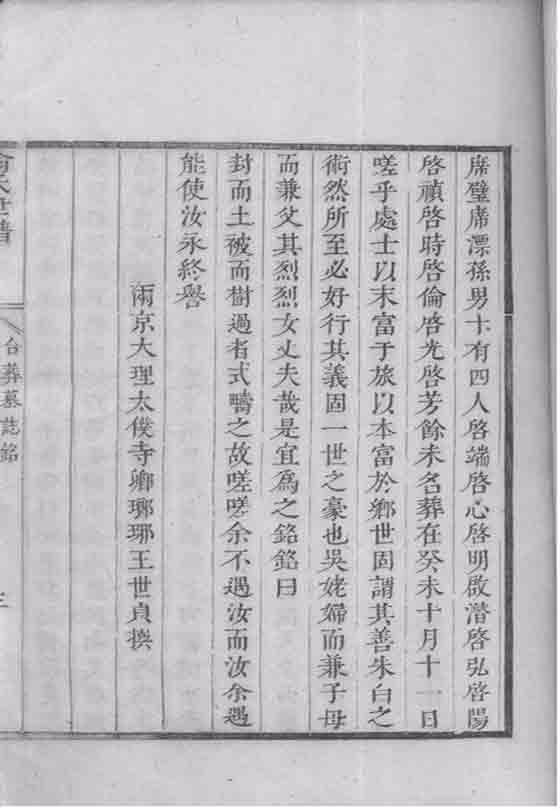 席璧席漂孫男十有四人啓端啓心啓明啟潛啓弘啓陽
啓禎啓時啓倫啓光啓芳餘未名葬在癸未十月十一日
嗟乎處士以末富于旅以本富於鄉世固謂其善朱白之
術然所至必好行其義固一世之豪也吳姥婦而兼子母
而兼父其烈烈女丈夫哉是宜爲之銘銘曰
封而土被而樹過者式疇之故嗟嗟余不遇汝而汝余遇
能使汝永終譽
兩京大理太僕寺鄉瑯琊王世貞撰
氏世譜
合葬墓誌銘
三